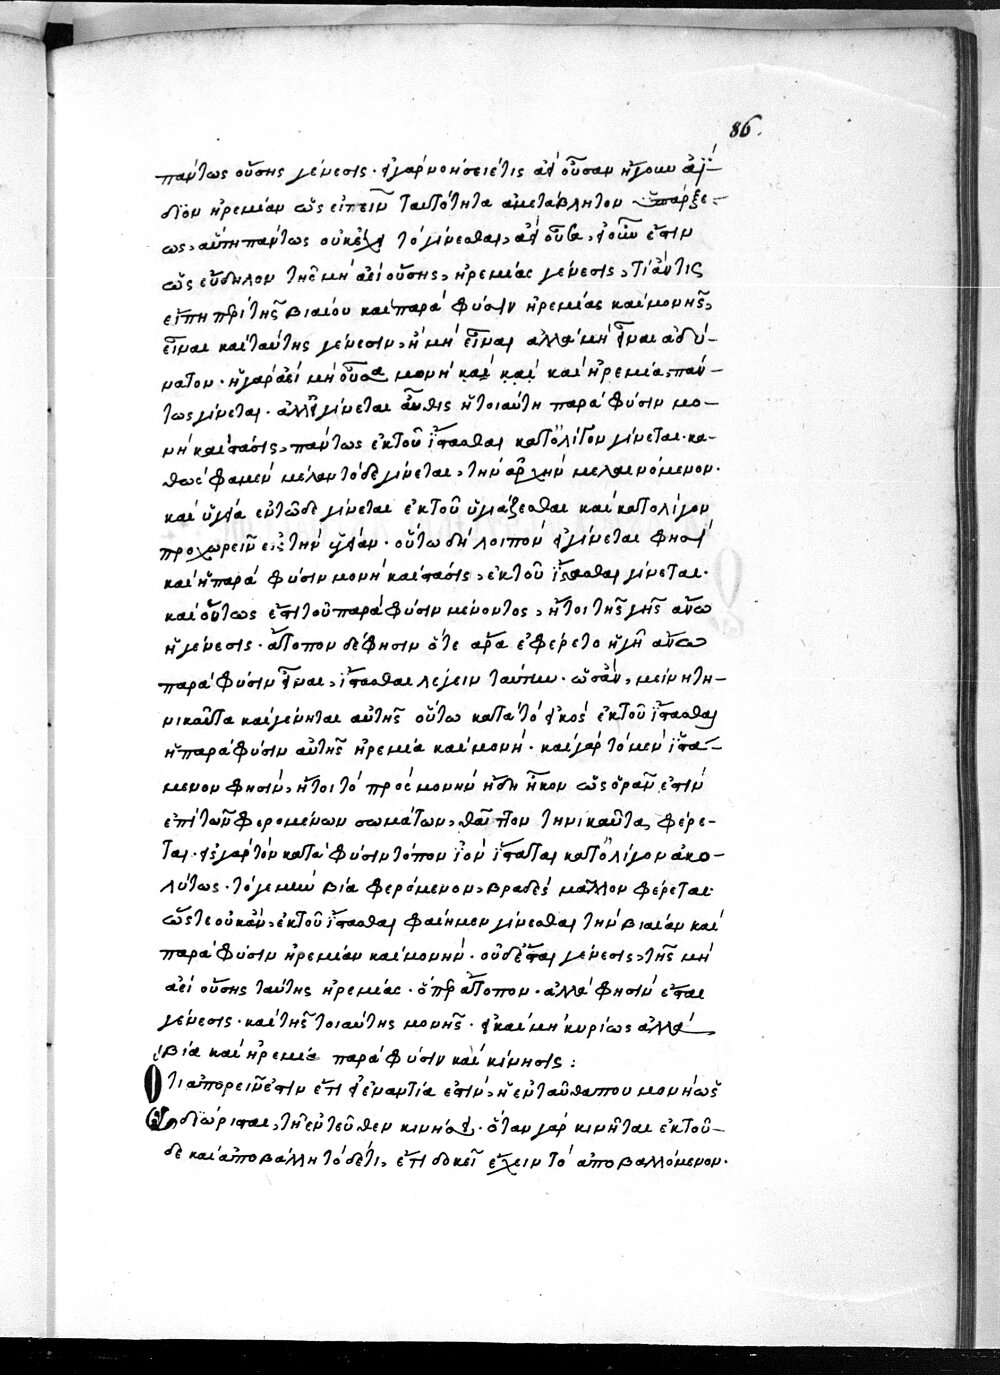 86.
πάντως οὔσης γένεσις · εἰ γὰρ νοήσειέ τις ἀεὶ οὖσαν ἤγουν ἀΐ-
διον ἠρεμίαν ὡς εἰπεῖν ταυτότητα ἀμετάβλητον ὑπάρξε-
ως, αὕτη πάντως οὐκ ἔχει τὸ γίνεσθαι, ἀεὶ οὖσα, εἰ οὖν ἔστιν
ὡς εὔδηλον τῆς μὴ ἀεὶ οὔσης, ἠρεμίας γένεσις, τί ἄν τις
εἴπῃ περὶ τῆς βιαίου καὶ παρὰ φύσιν ἠρεμίας καὶ μονῆς,
εἶναι καὶ ταύτης γένεσιν, ἢ μὴ εἶναι ἀλλὰ μὴ εἶναι ἀδύ-
νατον · ἡ γὰρ ἀεὶ μὴ οὖσα μονὴ καὶ καὶ καὶ ἠρεμία, πάν-
τως γίνεται · ἀλλ' εἰ γίνεται αὖθις ἡ τοιαύτη παρὰ φύσιν μο-
νὴ καὶ στάσις, πάντως ἐκ τοῦ ἵστασθαι κατολίγον γίνεται · κα-
θὼς φαμὲν μέλαν τόδε γίνεται, τὴν ἀρχὴν μελαινόμενον ·
καὶ ὑγιὰ ἐν τῷδε γίνεται ἐκ τοῦ ὑγιάζεσθαι καὶ κατολίγον
προχωρεῖν εἰς τὴν ὑγίαν · οὕτω δὴ λοιπὸν εἰ γίνεται φησὶ
καὶ ἡ παρὰ φύσιν μονὴ καὶ στάσις, ἐκ τοῦ ἵστασθαι γίνεται ·
καὶ οὕτως ἐπὶ τοῦ παρὰ φύσιν μένοντος, ἤτοι τῆς γῆς ἄνω
ἡ γένεσις · ἄτοπον δέ φησιν ὅτε ἄρα ἐφέρετο ἡ γῆ ἄνω
παρὰ φύσιν εἶναι, ἵστασθαι λέγειν ταύτην · ὡσὰν, μείνῃ τη-
νικαῦτα καὶ γένηται αὐτῆς οὕτω κατὰ τὸ εἰκὸς ἐκ τοῦ ἵστασθαι
ἡ παρὰ φύσιν αὐτῆς ἠρεμία καὶ μονή · καὶ γὰρ τὸ μὲν ἱστά-
μενον φησὶν, ἤτοι τὸ πρὸς μονὴν ἤδη ἧκον ὡς ὁρᾶν ἐστὶν
ἐπὶ τῶν φερομένων σωμάτων, θᾶττον τηνικαῦτα, φέρε-
ται · εἰς γὰρ τὸν κατὰ φύσιν τόπον ἰὸν ἵσταται κατολίγον ἀκω-
λύτως · τὸ γε μὴν βία φερόμενον, βραδὺ μᾶλλον φέρεται
ὥστε οὐκ ἂν, ἐκ τοῦ ἵστασθαι φαίημεν γίνεσθαι τὴν βιαίαν καὶ
παρὰ φύσιν ἠρεμίαν καὶ μονήν · οὐδ' ἔσται γένεσις, τῆς μὴ
ἀεὶ οὔσης ταύτης ἠρεμίας · ὅπερ ἄτοπον · ἀλλὰ φησὶν ἔσται
γένεσις · καὶ τῆς τοιαύτης μονῆς · εἰ καὶ μὴ κυρίως ἀλλὰ
βία καὶ ἠρεμία παρὰ φύσιν καὶ κίνησις :
Ὅτι ἀπορεῖν ἐστιν ἔτι εἰ ἐναντία ἐστὶν, ἡ ἐνταῦθά που μονὴ ὡς
διώρισται, τῇ ἐντεῦθεν κινήσει · ὅταν γὰρ κινῆται ἐκ τοῦ-
δε καὶ ἀποβάλλῃ τόδέ τι, ἔτι δοκεῖ ἔχειν τὸ ἀποβαλλόμενον ·